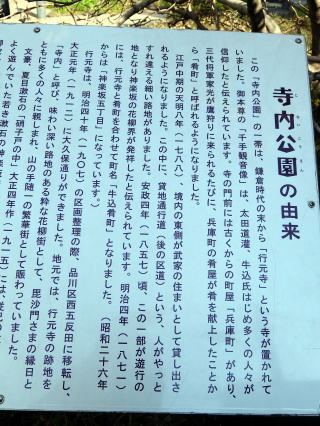 寺内公園の由来
この「寺内公園」の一帯は、鎌倉時代の末から「行元寺」という寺が置かれて
いました。御本尊の「千手観音像」は、太田道灌、牛込氏はじめ多くの人々が
信仰したと伝えられています。寺の門前には古くからの町屋「兵庫町」があり、
三代将軍家光が鷹狩りに来られるたびに、兵庫町の肴屋が肴を献上したことか
ら「肴町」と呼ばれるようになりました。
江戸中期の天明八年(一七八八)、境内の東側が武家の住まいとして貸し出さ
れるようになりました。この中に、貸地通行道(後の区道)という、人がやっと
すれ違える細い路地がありました。安政四年(一八五七)頃、この一部が遊行の
地となり神楽坂の花柳界が発祥したと伝えられています。明治四年(一八七一)
には、行元寺と肴町を合わせて町名「牛込肴町」となりました。(昭和二十六年
からは「神楽坂五丁目」になっています。)
行元寺は、明治四十年(一九〇七)の区画整理の際、品川区西五反田に移転し、
大正元年(一九一二)に大久保通りができました。地元では、行元寺の跡地を
「寺内」と呼び、味わい深い路地のある粋な花柳街として、毘沙門さまの縁日と
ともに多くの人々に親しまれ、山の手随一の繁華街として賑わっていました。
文豪、夏目漱石の「硝子戸の中」大正四年作(一九一五)には、
よく遊んでいた若き漱石の神楽坂